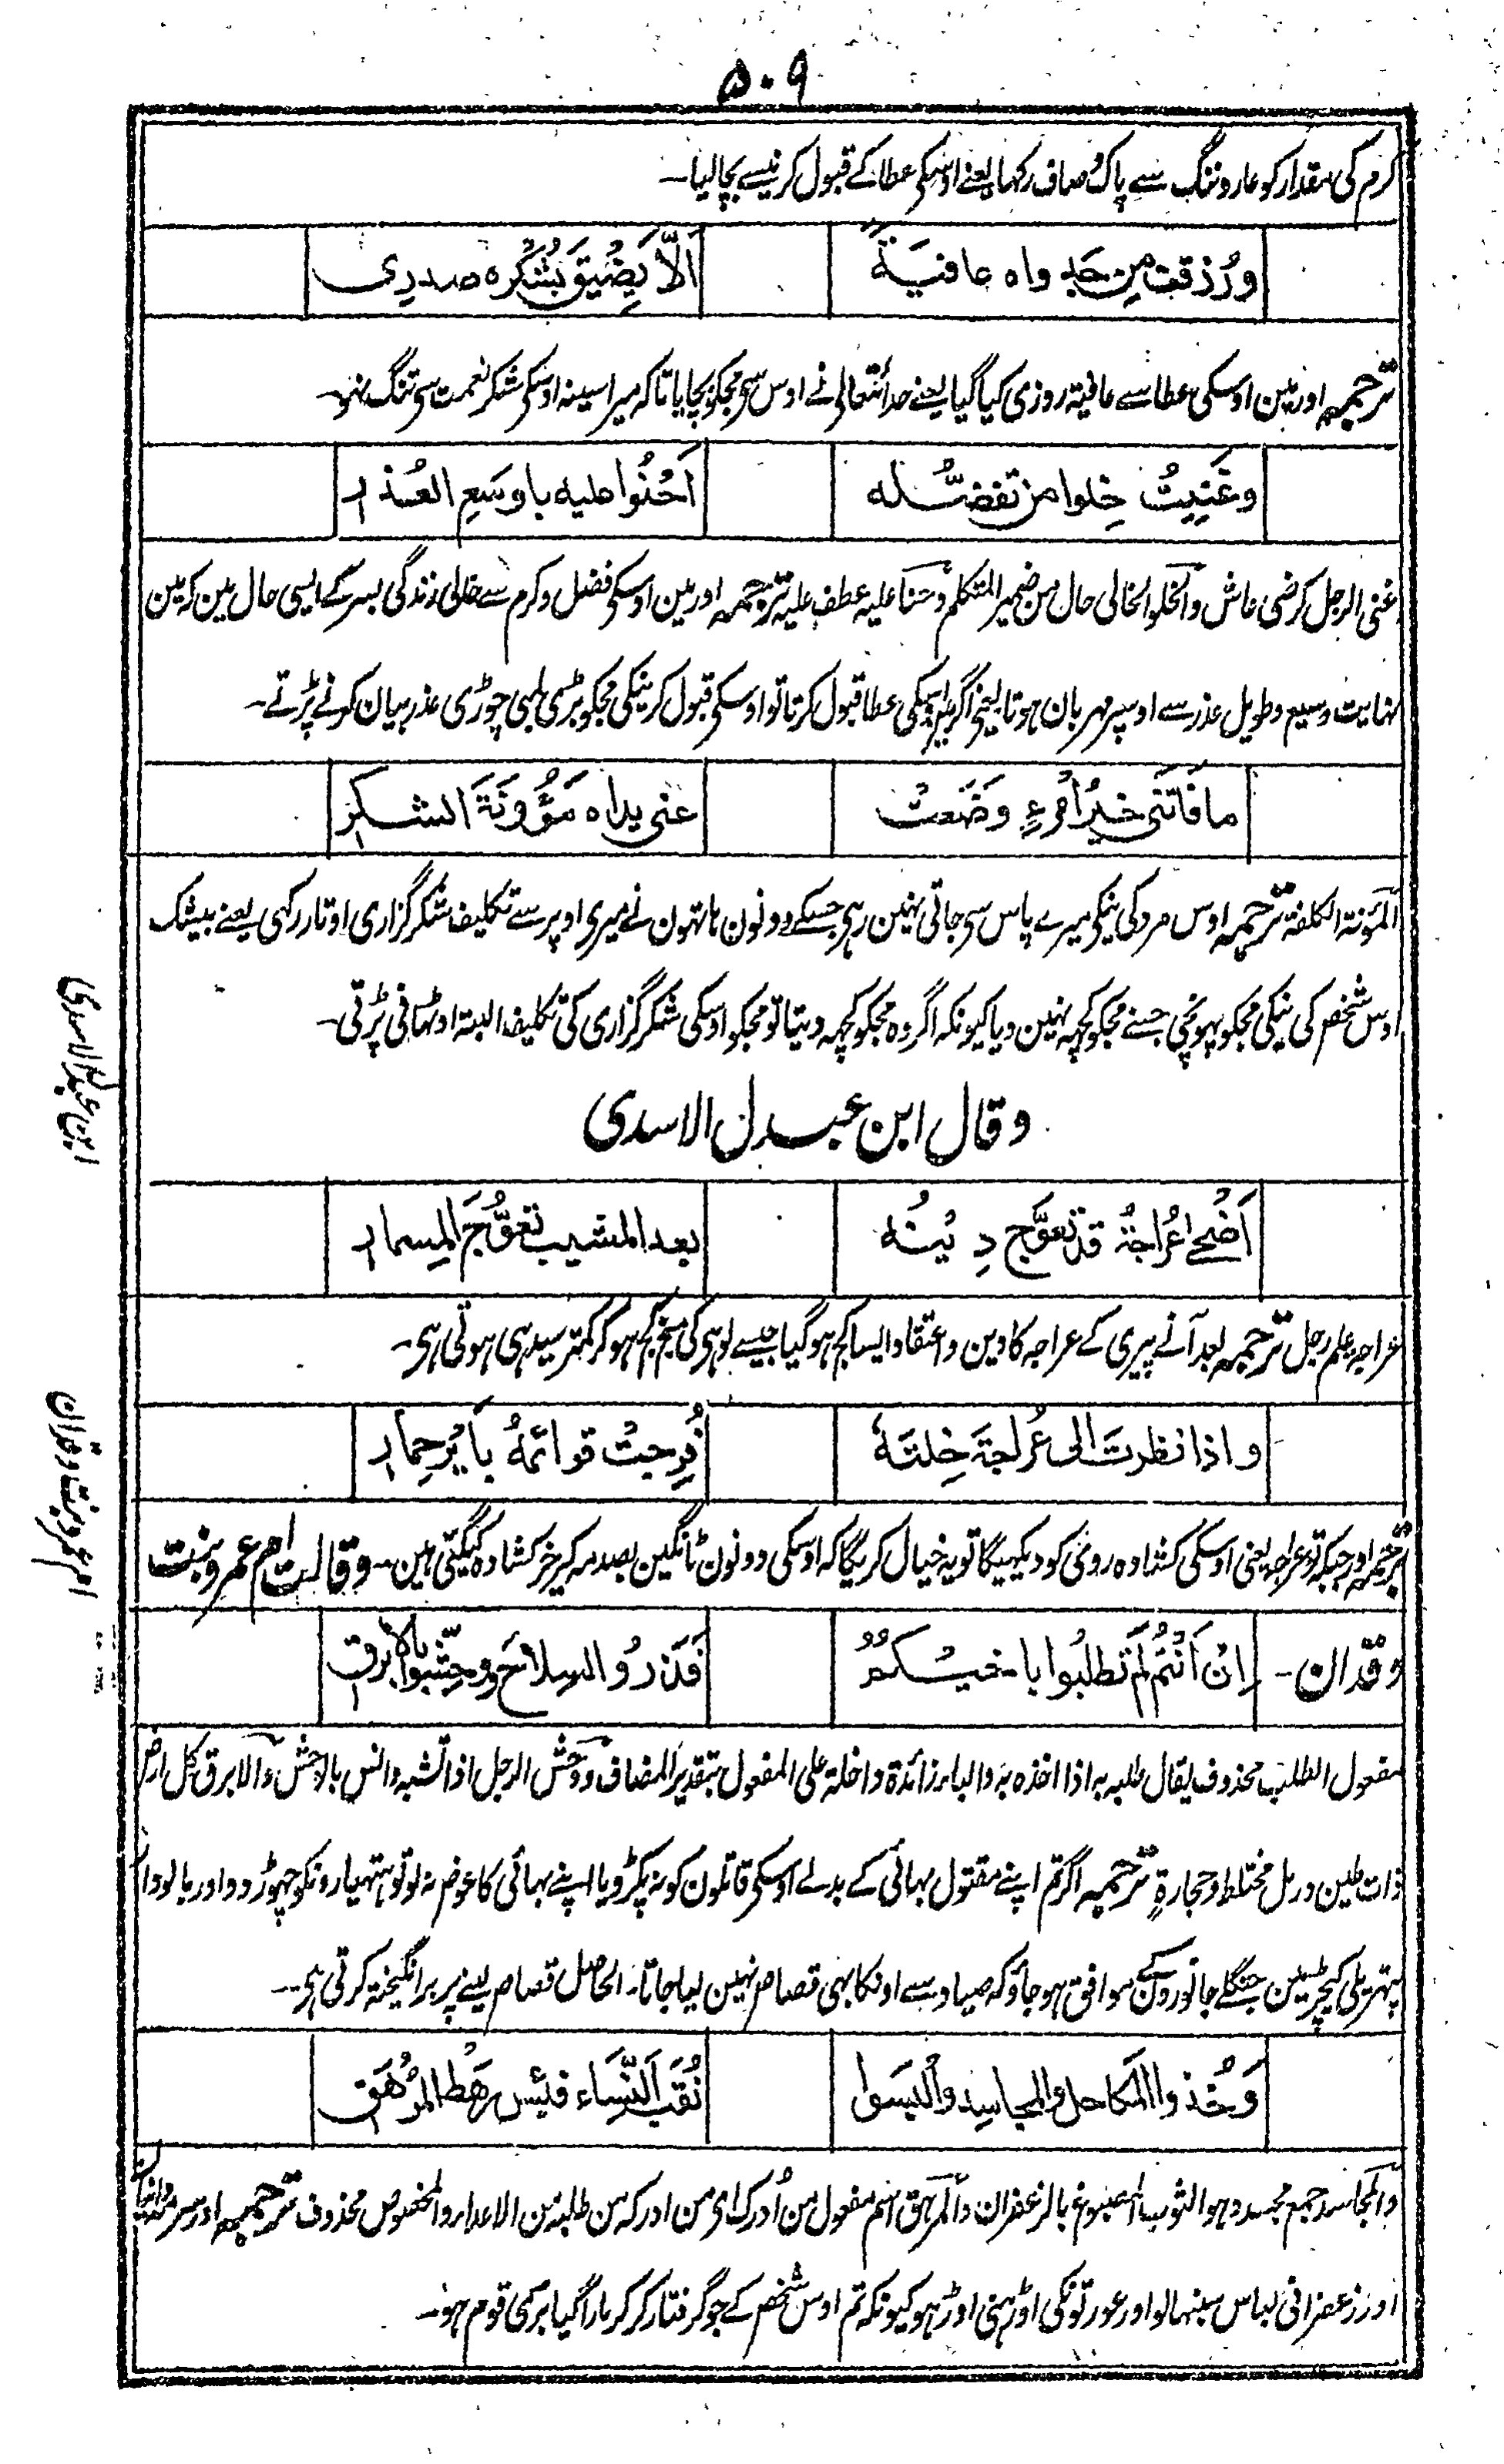 ۵۰۹
کرم کی مقدار کو عار و ننگ سے پاک و صاف رکہا یعنے اوسکی عطا کے قبول کرنیسے بچا لیا۔
ورُزقت من جدواه عافيةً اَلّا يَضيقَ بشُكره صدرِى
ترجمہ اور مین اوسکی عطا سے عافیۃ روزی کیا گیا یعنے خدائتعالی نے اوس سی مجکو بچایا تاکہ میرا سینہ اوسکی شکر نعمت سی تنگ نہو۔
وغَنِيتُ خِلوا من تفضّله اَحنُوا عليه باوسَعِ العُذر
غنی الرجل کرضی عاش والخلو الخالی حال من ضمیر المتکلم وحنا علیہ عطف علیہ ترجمہ اور مین اوسکی فضل و کرم سے خالی زندگی بسر کے ایسی حال مین کہ مین
نہایت وسیع و طویل عذر سے اوسپر مہربان ہوتا یعنے اگر مین اوسکی عطا قبول کرتا تو اوسکی قبول کرنیکی مجکو بڑی لمبی چوڑی عذر بیان کرنے پڑتے۔
ما فاتنى خيرُ امرءٍ وضَعت عنى يداه مَؤُونَةَ الشكر
المؤنۃ الکلفۃ ترجمہ اوس مرد کی نیکی میرے پاس سی جاتی نہین رہی جسکے دونون ہاتہون نے میری اوپر سے تکلیف شکر گزاری اوتار رکہی یعنے بیشک
اوس شخص کی نیکی مجکو پہونچی جسنے مجکو کچہہ نہین دیا کیونکہ اگر وہ مجکو کچہہ دیتا تو مجکو اوسکی شکر گزاری کی تکلیف البتہ اوٹہانی پڑتی۔
وقال ابن عبدل الاسدی
ابن عبدل الاسدی
اَضحٰى عُراجةُ قد تعوَّج دِينُه بعد المشيب تعوُّجَ المِسمار
عراجۃ علم رجل ترجمہ بعد آنے پیری کے عراجہ کا دین و اعتقاد ایسا کج ہوگیا جیسے لوہی کی میخ کج ہوکر کمتر سیدہی ہوتی ہی۔
واذا نظرتَ الى عُراجةَ خِلتَهٗ فُرِجتْ قوائمهٗ باَيرِ حِمار
ترجمہ اور جبکہ تو عراجہ یعنی اوسکی کشادہ روئی کو دیکہیگا تو یہ خیال کریگا کہ اوسکی دونون ٹانگین بصدمہ کیر خر کشادہ کیگئی ہین۔ وقالت ام عمرو بنت
ام عمرو بنت وقدان
وقدان۔ اِنْ اَنتُم لم تطلبُوا باخيكمُ فذَرُوا السِلاحَ ووحِّشُوا بالابرق
مفعول الطلب محذوف یقال طلبہ بہ اذا اخذہ بہ والباء زائدۃ داخلۃ علی المفعول بتقدیر المضاف ووحش الرجل اذا تشبہ وانس بالوحش والابرق کل ارض
ذات طین و رمل مختلط وحجارۃٍ ترجمہ اگر تم اپنے مقتول بہائی کے بدلے اوسکی قاتلون کو نہ پکڑو یا اپنے بہائی کا عوض نہ لو تو ہتہیارونکو چہوڑ دو اور بالودار
پتہریلی کیچڑمین جنگلے جانورونکے موافق ہوجاؤ کہ صیاد سے اونکا بہی قصاص نہین لیا جاتا۔ الحاصل قصاص لینے پر برانگیختہ کرتی ہی۔
وخُذوا المكاحل والمجاسد والبَسوا نُقَبَ النِّساء فبئس رهطُ المرُهَق
والمجاسد جمع مجسد وہو الثوب المصبوغ بالزعفران والمرہق اسم مفعول من اُدرک ای من ادرکہ من طلبہ من الاعداء والمخصوص محذوف ترجمہ اور سرمہ دانیان
اور زعفرانی لباس سنبہالو اور عورتونکی اوڑہنی اوڑہو کیونکہ تم اوس شخص کے جو گرفتار کرکر مارا گیا بری قوم ہو۔